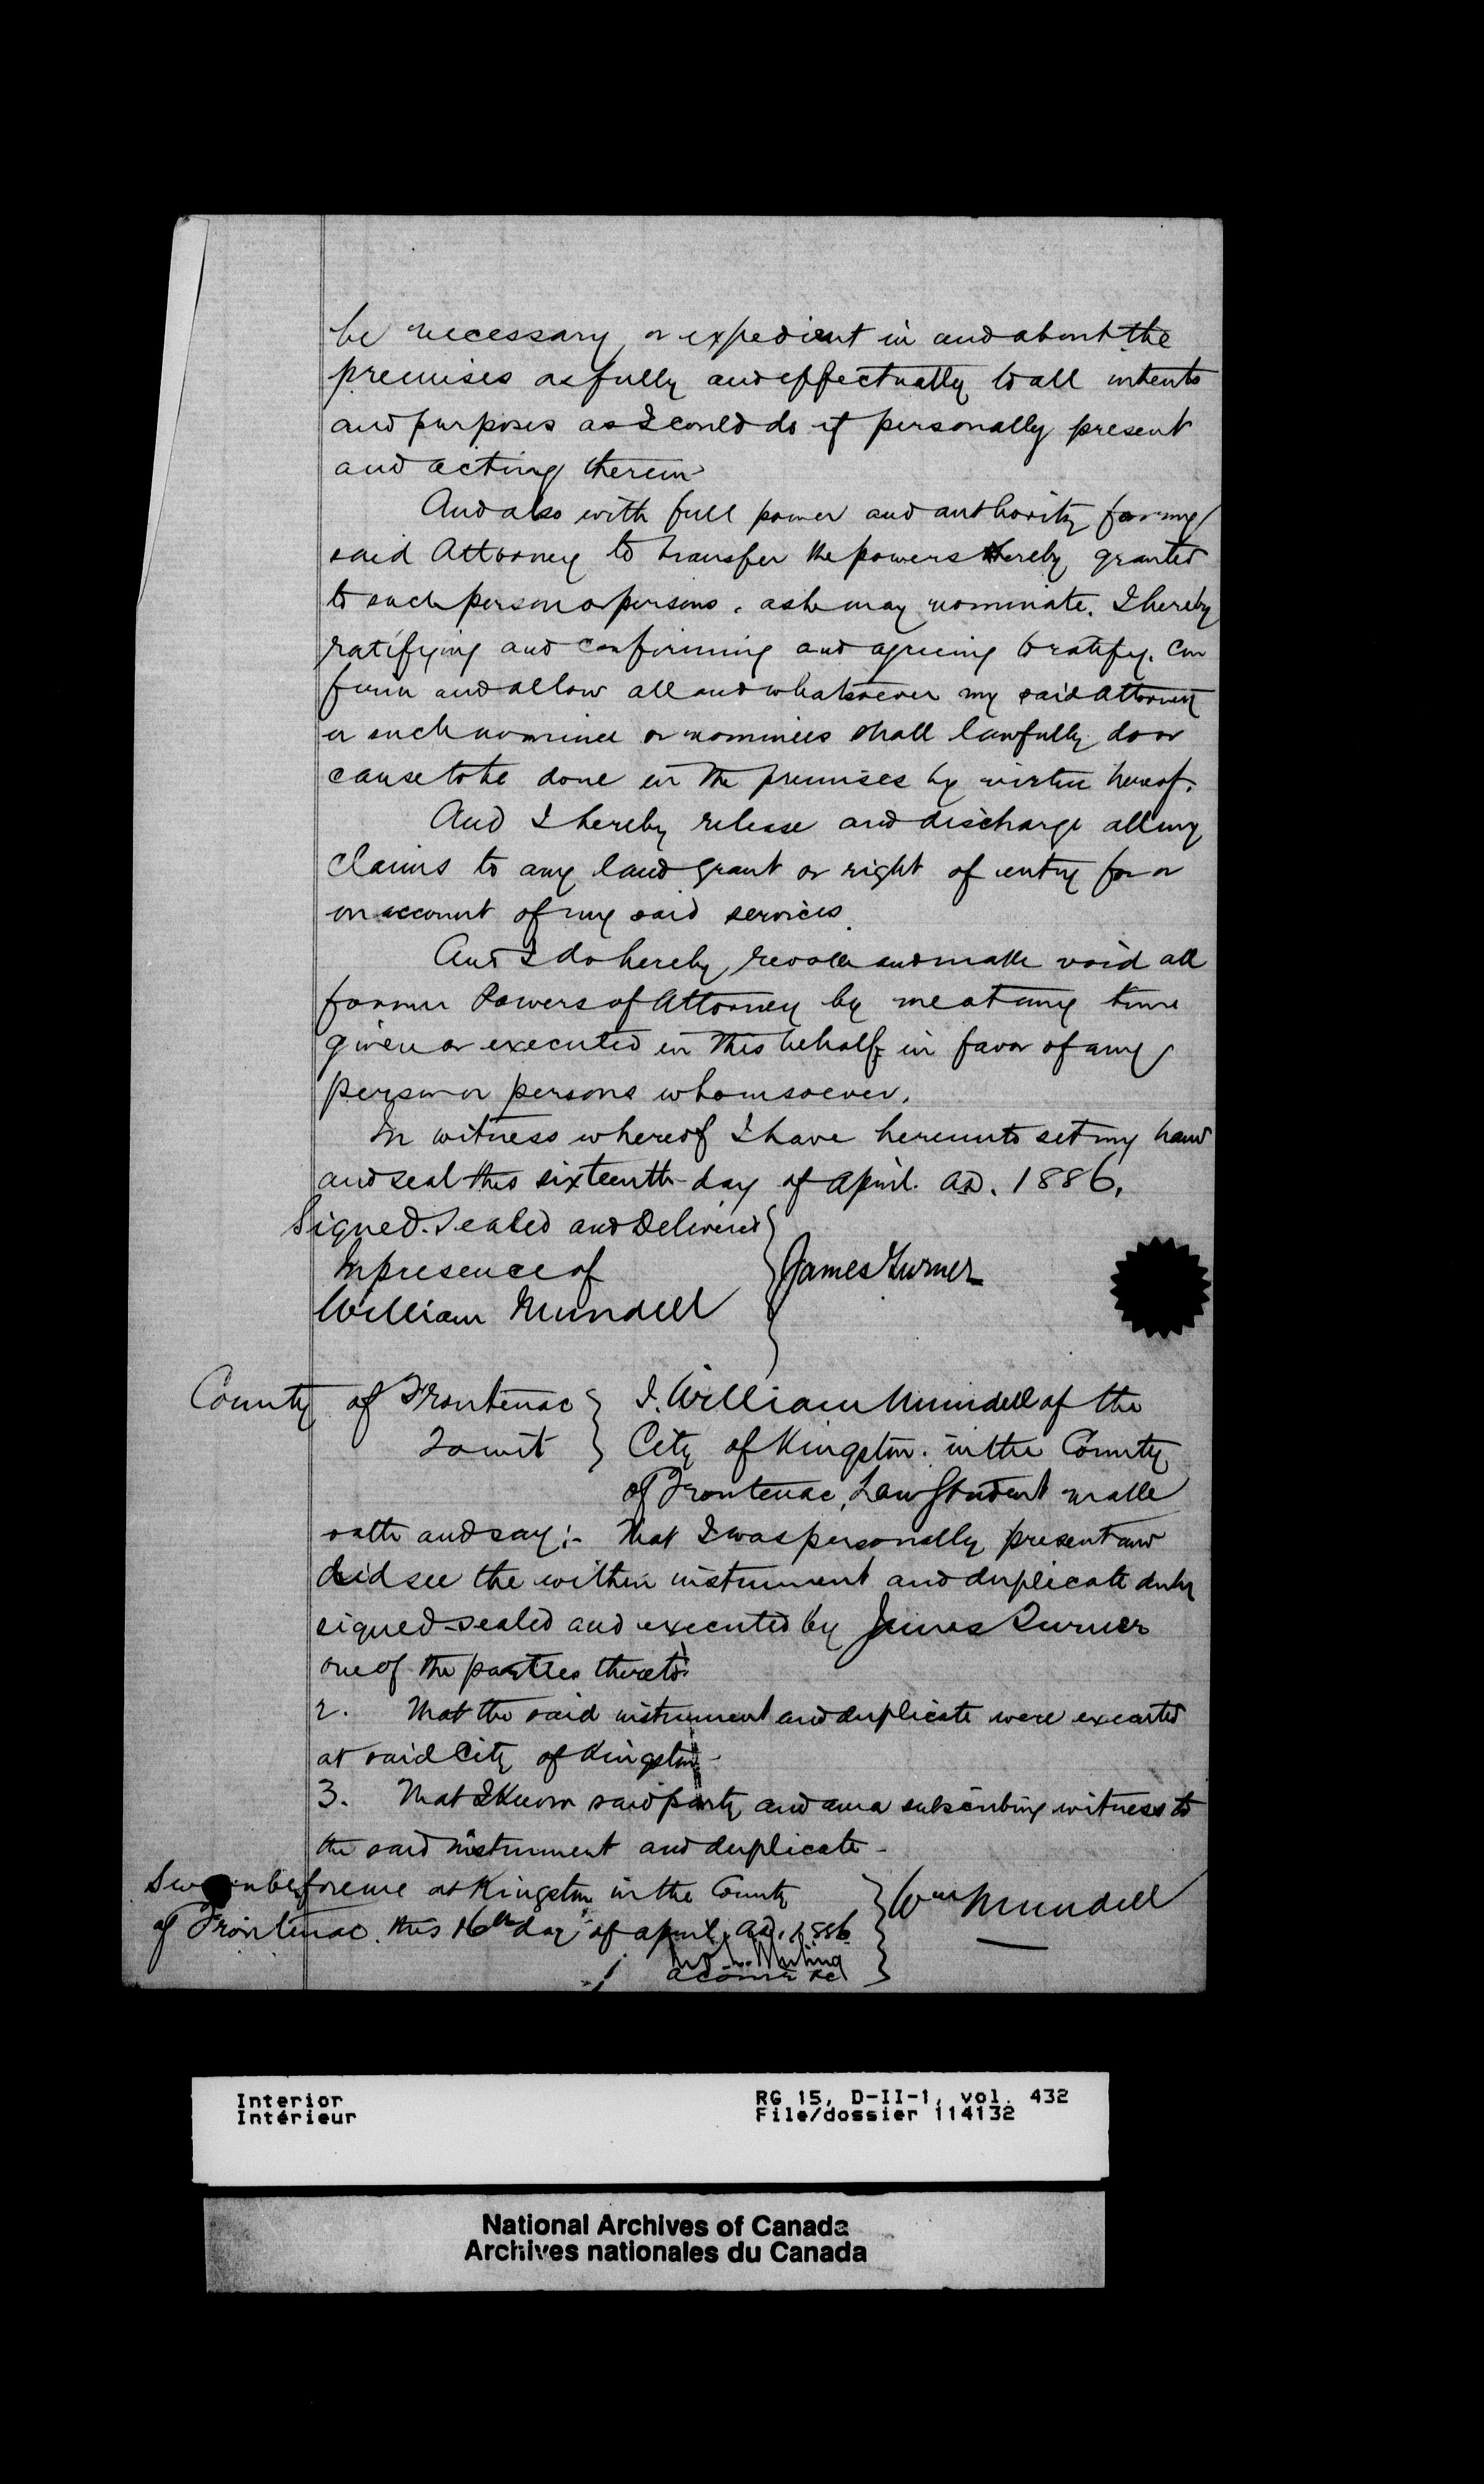 be necessary, or expedient in and about the
premises as fully and effectually to all intents
and purposes as I could do if personally present
and acting therein
And also with full power and authority for my
said Attorney to transfer the powers hereby granted
to such person or persons, as he may nominate. I hereby
ratifying and confirming and agreeing to ratify. Con
firm and allow all and whatsoever my said Attorney
or such nominee or nominees shall lawfully do or
cause to be done in the premises by virtue hereof.
And I hereby release and discharge all my
Claims to any land grant or right of entry for or
on account of my said services.
And I do hereby revoke and make void all
former Powers of Attorney by me at any time
given or executed in this behalf in favor of any
person or persons whomsoever.
In witness whereof I have hereunto set my hand
and seal this sixteenth day of April. AD. 1886.
Signed. Sealed and Delivered
In presence of
James Turner
William Mundell
County of Frontenac
I. William Mundell of the
To wit
City of Kingston. in the County
of Frontenac, Law Student make
oath and say:- That I was personally present and
did see the within instrument and duplicate duly
signed sealed and executed by James Turner
one of the parties thereto.
2. That the said instrument and duplicate were executed
at said City of Kingston-
3. That I Know said party and am a subscribing witness to
the said instrument and duplicate-
Sworn before me at Kingston in the County
of Frontenac. this 16th day of April. AD. 1886
Wm Mundell
A Comr &c
Interior
Intérieur
RG 15, D-II-1, vol. 432
File/dossier 114132
National Archives of Canada
Archives nationales du Canada